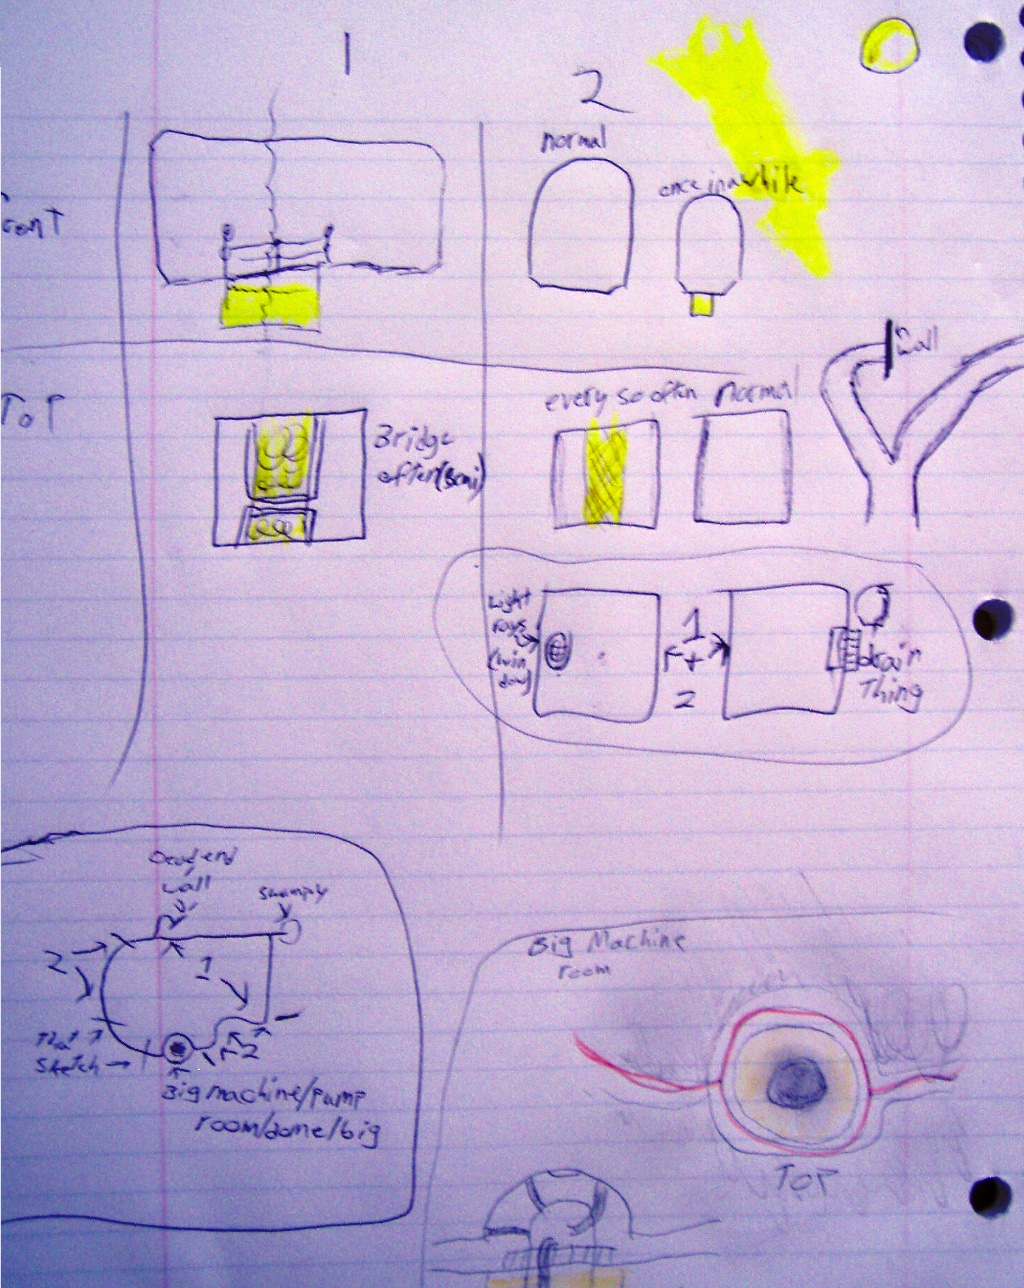 1
2
normal
once in a while
Front
Wall
Top
every so often
normal
Bridge
after (semi)
Light
rays
(win
dow)
1
+
2
drain
Thing
Dead end
wall
swampy
2
1
2
that
sketch
Big machine/pump
room/dome/big
Big Machine
room
TOP